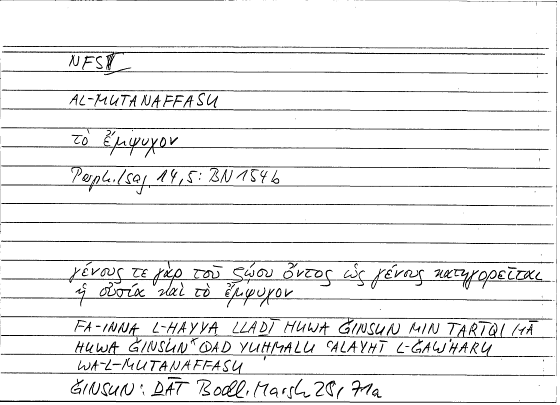 NFS V
AL-MUTANAFFASU
τὸ ἔμψυχον
Porph. Isag. 14,5: BN 154b
γένους τε γὰρ τοῦ ζῴου ὄντος ὡς γένους κατηγορεῖται
ἡ οὐσία καὶ τὸ ἔμψυχον
FA-INNA L-HAYYA LLADĪ HUWA ĞINSUN MIN TARĪQI MĀ
HUWA ĞINSUN* QAD YUHMALU ʿALAYHĪ L-ĞAWHARU
WA-L-MUTANAFFASU
ĞINSUN: DĀT Bodl. Marsh 28, 71a